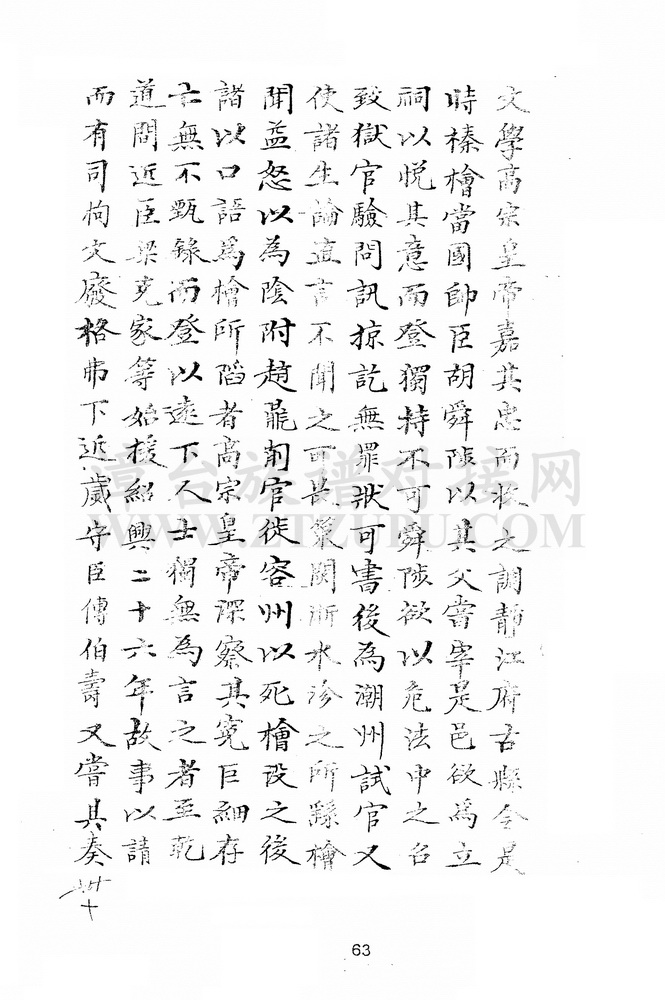 文學高宗皇帝嘉其忠而收之調静江府古縣令是
時榛檜當國帥臣胡舜陟以其父嘗宰是邑欲爲立
祠以悦其意而登獨持不可舜陟欲以危法中之召
致獄官驗問訊掠訖無罪狀可書後為潮州試官又
使諸生論直言不聞之可畏策閩浙水沴之所繇檜
聞益怒以為陰附趙鼎削官徙容州以死檜没之後
諸以口語爲檜所陷者高宗皇帝深察其寃巨細存
亡無不甄錄而登以遠下人士獨無為言之者至乾
道間近臣梁克家等始援紹興二十六年故事以請
而有司拘文廢格弗下近歲守臣傅伯壽又嘗具奏
卅十
63
潭台族谱对接网
WWW.ZTZUPU.COM